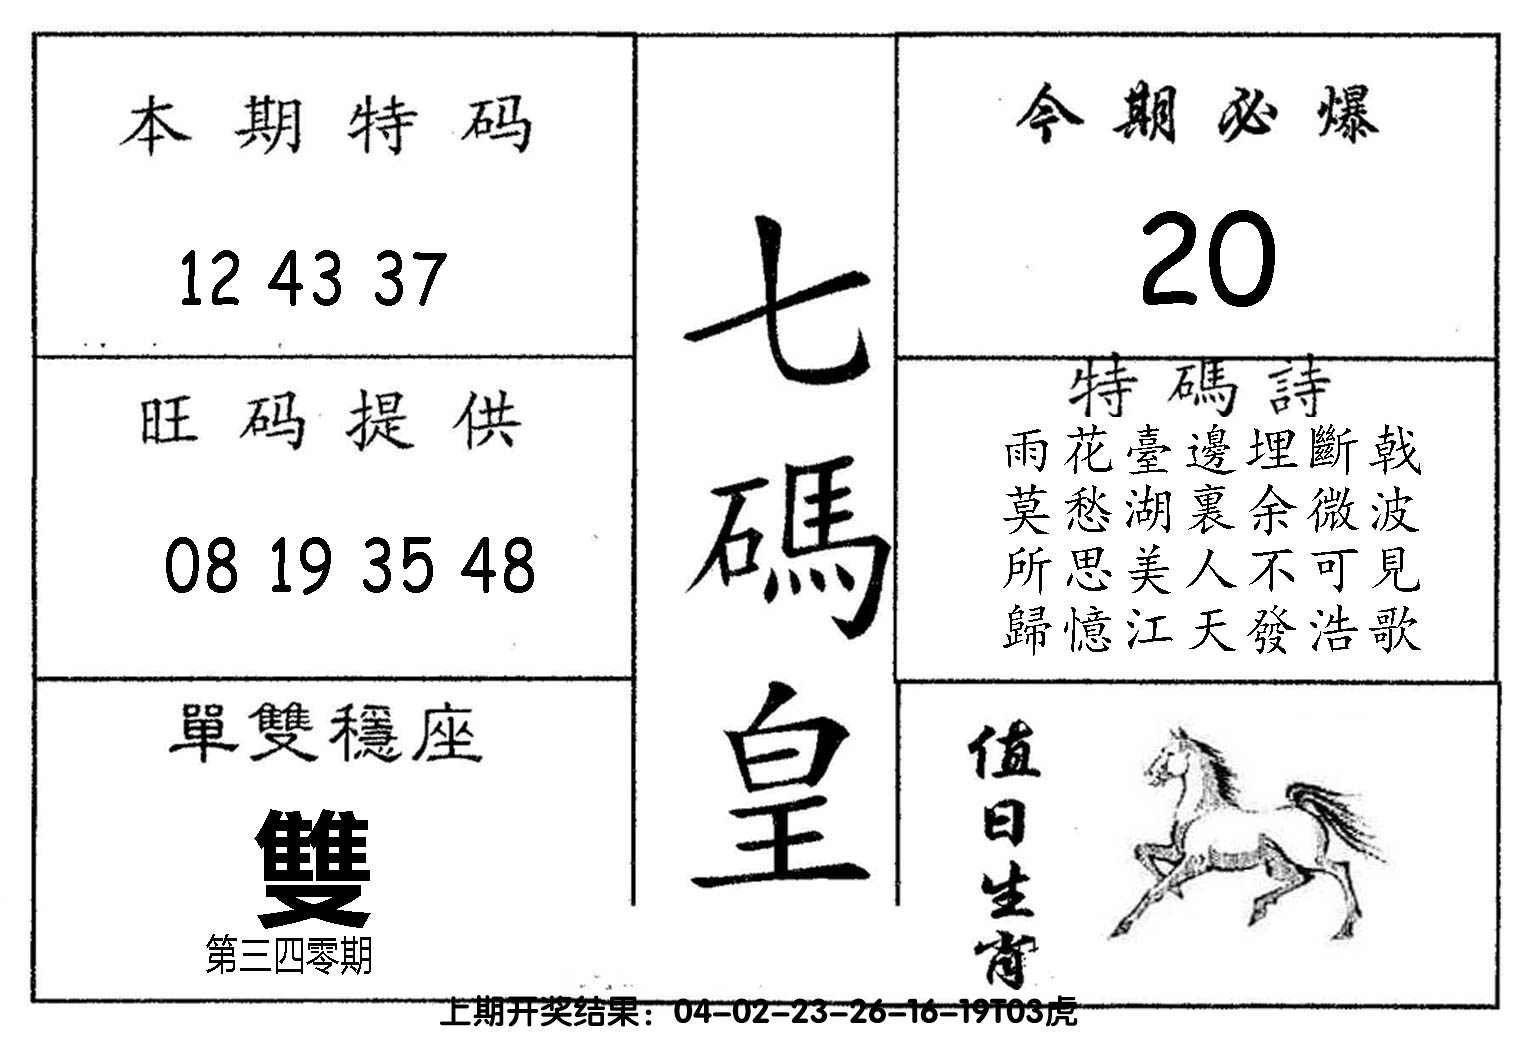 本期特码
12 43 37
旺码提供
08 19 35 48
單雙穩座
雙
第三四零期
七碼皇
今期必爆
20
特碼詩
雨花臺邊埋斷戟
莫愁湖裏余微波
所思美人不可見
歸憶江天發浩歌
值日生肖
上期开奖结果：04-02-23-26-16-19T03虎